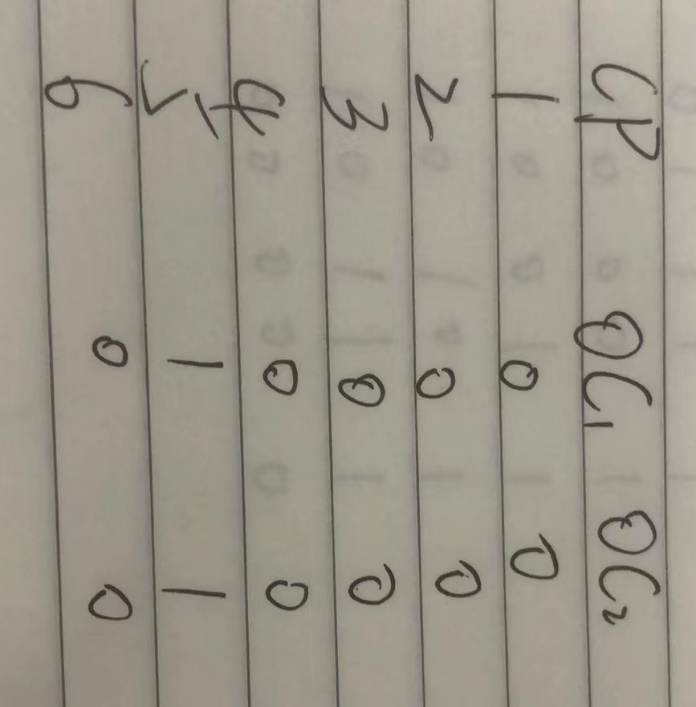 CP OC₁ OC₂
1 0 0
2 0 0
3 0 0
4 0 0
5 1 1
6 0 0